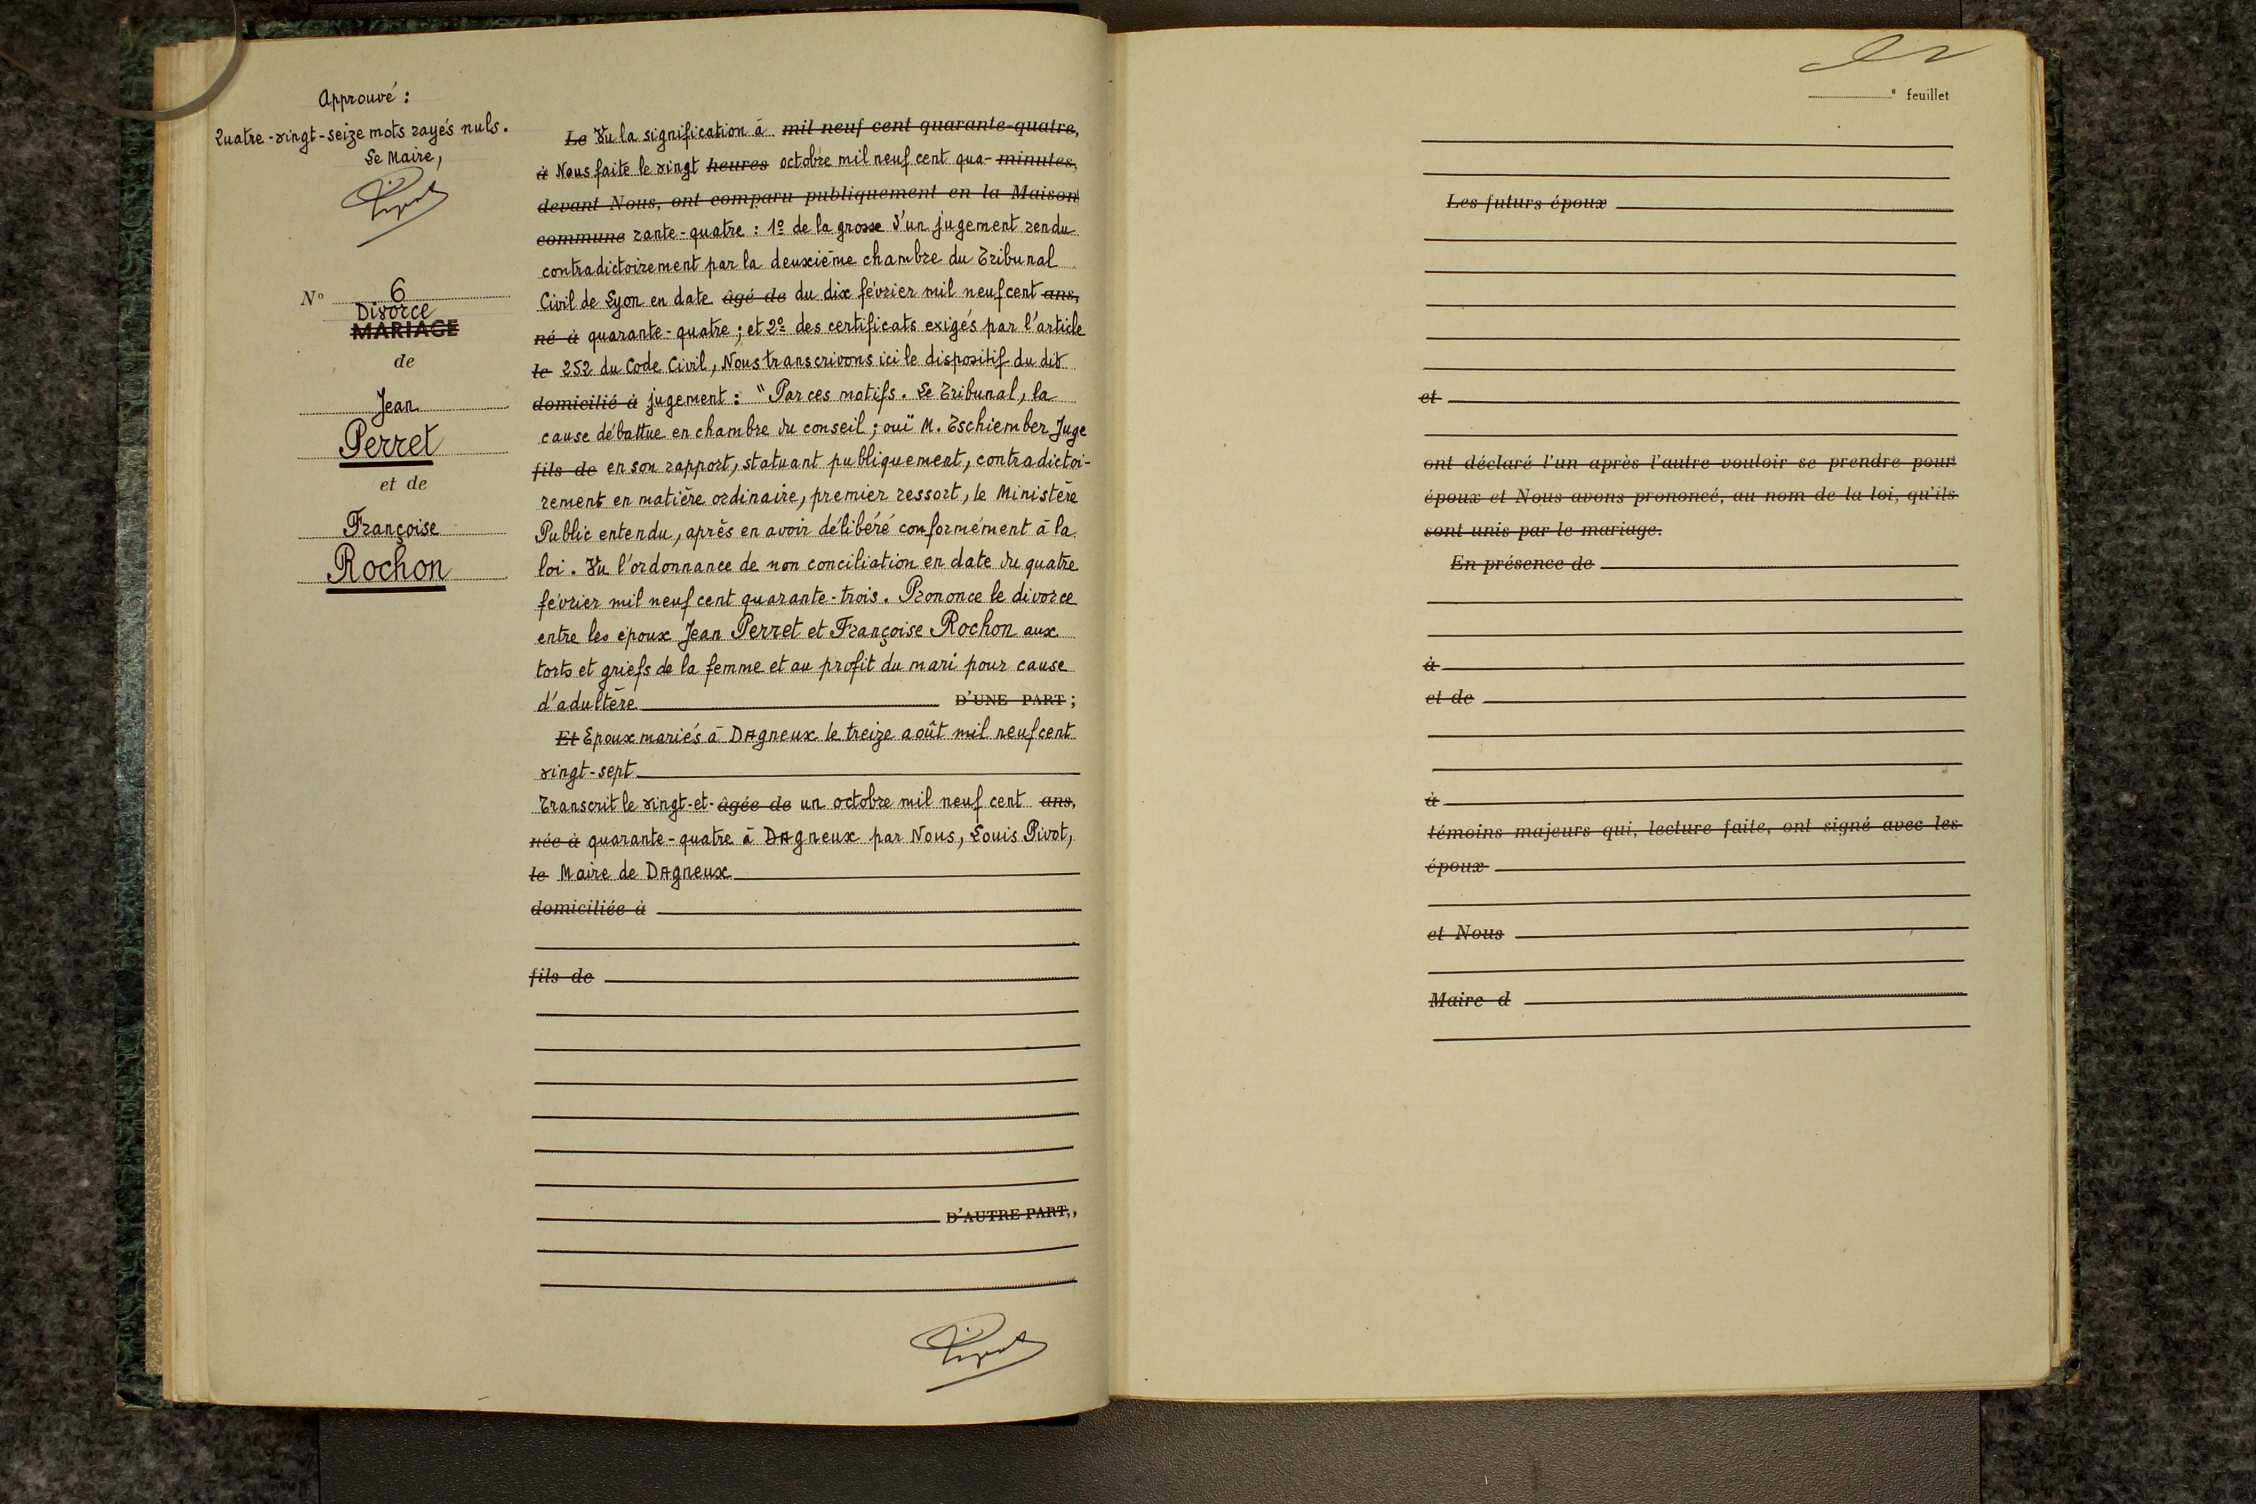 Approuvé :
Quatre-vingt-seize mots rayés nuls.
Le Maire,
Pivot
N° 6
Divorce
MARIAGE
de
Jean
Perret
et de
Françoise
Rochon
Le Vu la signification à mil neuf cent quarante-quatre,
à Nous faite le vingt heures octobre mil neuf cent qua- minutes,
devant Nous, ont comparu publiquement en la Maison
commune rante-quatre : 1º de la grosse d'un jugement rendu
contradictoirement par la deuxième chambre du Tribunal
Civil de Lyon en date âgé de du dix février mil neuf cent ans,
né à quarante-quatre ; et 2º des certificats exigés par l'article
le 252 du Code Civil, Nous transcrivons ici le dispositif du dit
domicilié à jugement : "Par ces motifs. Le Tribunal, la
cause débattue en chambre du conseil ; ouï M. Eschiember Juge
fils de en son rapport, statuant publiquement, contradictoi-
rement en matière ordinaire, premier ressort, le Ministère
Public entendu, après en avoir délibéré conformément à la
loi. Vu l'ordonnance de non conciliation en date du quatre
février mil neuf cent quarante-trois. Prononce le divorce
entre les époux Jean Perret et Françoise Rochon aux
torts et griefs de la femme et au profit du mari pour cause
d'adultère D'UNE PART ;
Et Epoux mariés à Dagneux le treize août mil neuf cent
vingt-sept
Transcrit le vingt-et- âgée de un octobre mil neuf cent ans,
née à quarante-quatre à Dagneux par Nous, Louis Pivot,
le Maire de Dagneux
domiciliée à
fils de
D'AUTRE PART,,
Pivot
° feuillet
Les futurs époux
et
ont déclaré l'un après l'autre vouloir se prendre pour
époux et Nous avons prononcé, au nom de la loi, qu'ils
sont unis par le mariage.
En présence de
à
et de
à
témoins majeurs qui, lecture faite, ont signé avec les
époux
et Nous
Maire d